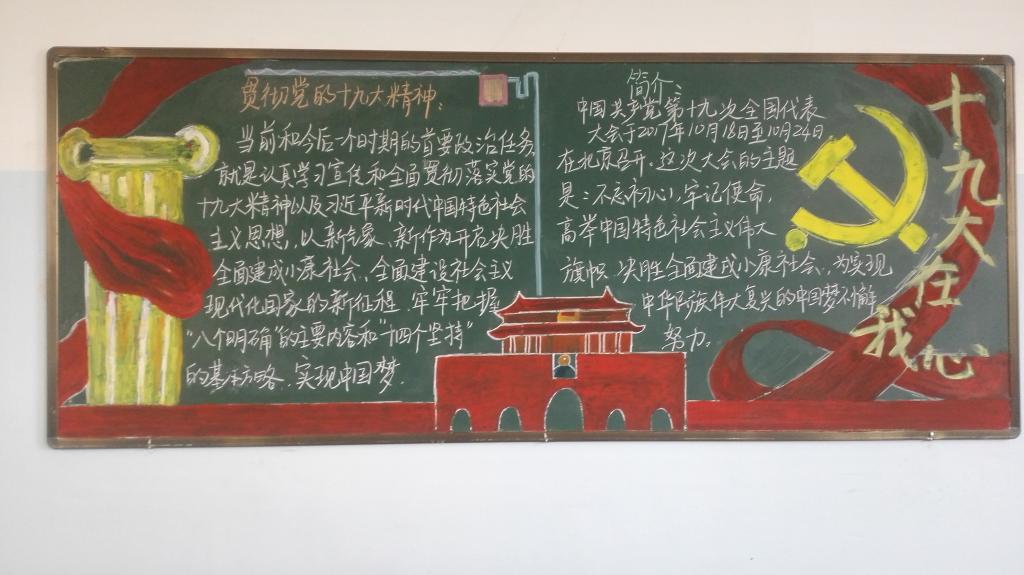 贯彻党的十九大精神：
当前和今后一个时期的首要政治任务
就是认真学习宣传和全面贯彻落实党的
十九大精神以及习近平新时代中国特色社会
主义思想，以新气象、新作为开启决胜
全面建成小康社会、全面建设社会主义
现代化国家的新征程，牢牢把握
“八个明确”的主要内容和“十四个坚持”
的基本方略，实现中国梦.
简介：
中国共产党第十九次全国代表
大会于2017年10月18日至10月24日
在北京召开。这次大会的主题
是：不忘初心，牢记使命，
高举中国特色社会主义伟大
旗帜，决胜全面建成小康社会，为实现
中华民族伟大复兴的中国梦不懈
努力。
十九大在我心